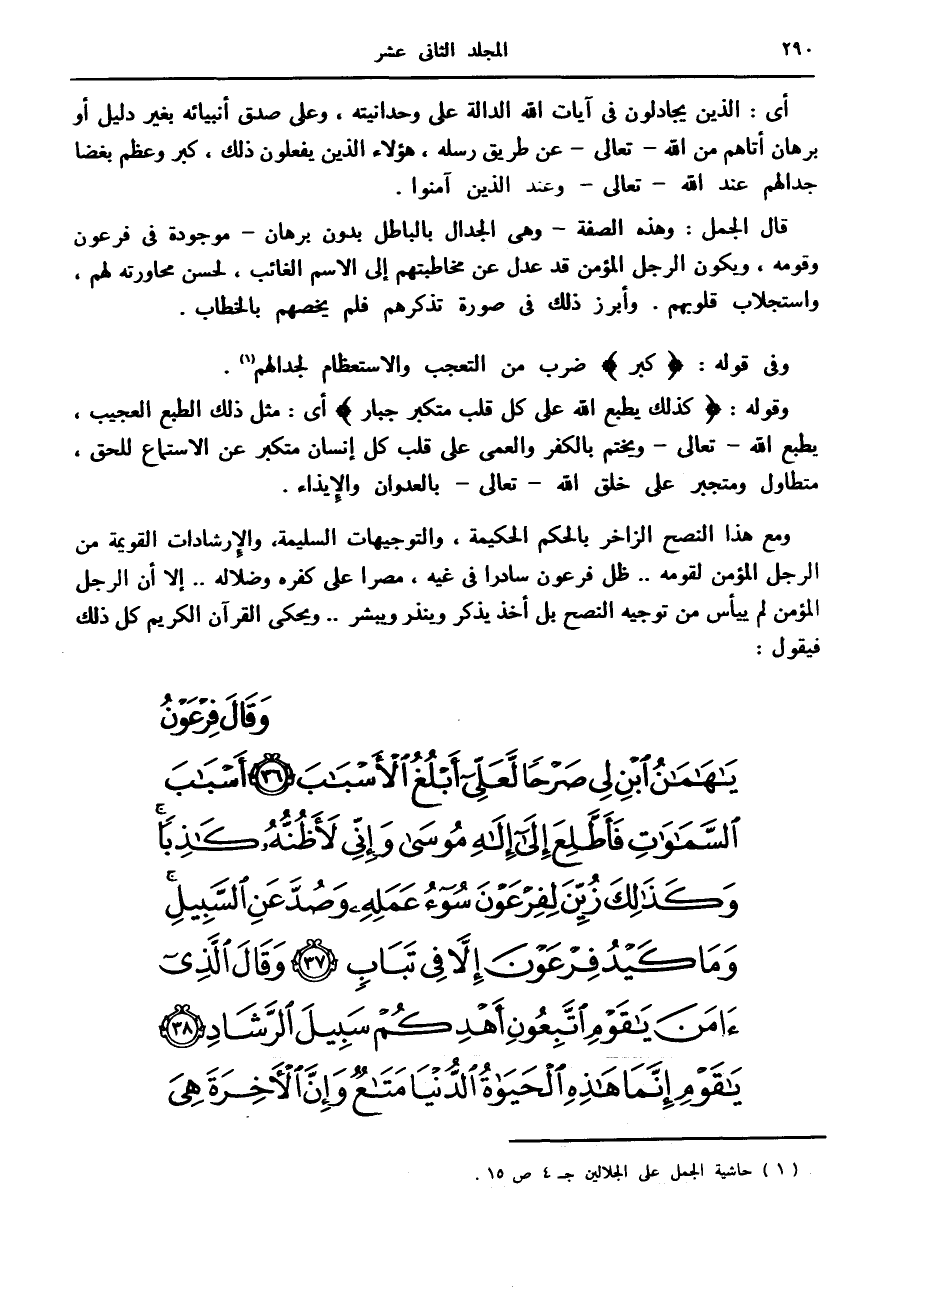 ٢٩٠ المجلد الثانى عشر
أى : الذين يجادلون فى آيات الله الدالة على وحدانيته ، وعلى صدق أنبيائه بغير دليل أو
برهان أتاهم من الله – تعالى – عن طريق رسله ، هؤلاء الذين يفعلون ذلك ، كبر وعظم بغضا
جدالهم عند الله – تعالى – وعند الذين آمنوا .
قال الجمل : وهذه الصفة – وهى الجدال بالباطل بدون برهان – موجودة فى فرعون
وقومه ، ويكون الرجل المؤمن قد عدل عن مخاطبتهم إلى الاسم الغائب ، لحسن محاورته لهم ،
واستجلاب قلوبهم . وأبرز ذلك فى صورة تذكرهم فلم يخصهم بالخطاب .
وفى قوله : ﴿ كبر ﴾ ضرب من التعجب والاستعظام لجدالهم(١) .
وقوله : ﴿ كذلك يطبع الله على كل قلب متكبر جبار ﴾ أى : مثل ذلك الطبع العجيب ،
يطبع الله – تعالى – ويختم بالكفر والعمى على قلب كل إنسان متكبر عن الاستماع للحق ،
متطاول ومتجبر على خلق الله – تعالى – بالعدوان والإيذاء .
ومع هذا النصح الزاخر بالحكم الحكيمة ، والتوجيهات السليمة، والإرشادات القويمة من
الرجل المؤمن لقومه .. ظل فرعون سادرا فى غيه ، مصرا على كفره وضلاله .. إلا أن الرجل
المؤمن لم ييأس من توجيه النصح بل أخذ يذكر وينذر ويبشر .. ويحكى القرآن الكريم كل ذلك
فيقول :
وَقَالَ فِرْعَوْنُ
يَٰهَٰمَٰنُ ٱبْنِ لِى صَرْحًا لَّعَلِّىٓ أَبْلُغُ ٱلْأَسْبَٰبَ ٣٦ أَسْبَٰبَ
ٱلسَّمَٰوَٰتِ فَأَطَّلِعَ إِلَىٰٓ إِلَٰهِ مُوسَىٰ وَإِنِّى لَأَظُنُّهُۥ كَٰذِبًا ۚ
وَكَذَٰلِكَ زُيِّنَ لِفِرْعَوْنَ سُوٓءُ عَمَلِهِۦ وَصُدَّ عَنِ ٱلسَّبِيلِ ۚ
وَمَا كَيْدُ فِرْعَوْنَ إِلَّا فِى تَبَابٍ ٣٧ وَقَالَ ٱلَّذِىٓ
ءَامَنَ يَٰقَوْمِ ٱتَّبِعُونِ أَهْدِكُمْ سَبِيلَ ٱلرَّشَادِ ٣٨
يَٰقَوْمِ إِنَّمَا هَٰذِهِ ٱلْحَيَوٰةُ ٱلدُّنْيَا مَتَٰعٌ وَإِنَّ ٱلْأَخِرَةَ هِىَ
( ١ ) حاشية الجمل على الجلالين جـ ٤ ص ١٥ .